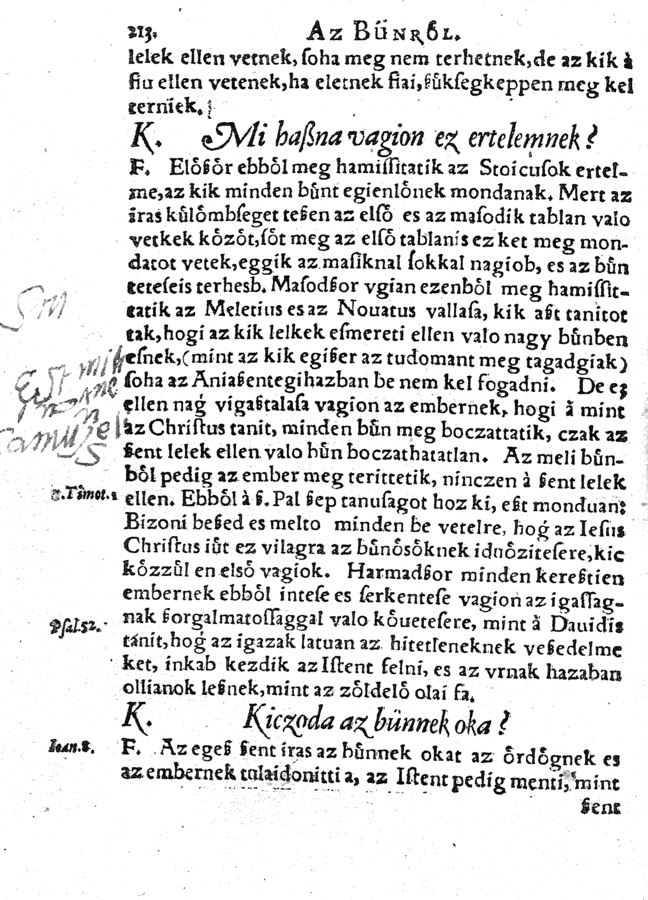 213. Az Bűnről.
lelek ellen vetnek, ſoha meg nem terhetnek, de az kik à
fiu ellen vetenek, ha eletnek fiai, ßůkſegkeppen meg kel
terniek.
K. Mi haßna vagion ez ertelemnek?
F. Előßőr ebből meg hamiſſitatik az Stoicuſok ertel-
me, az kik minden bůnt egienlőnek mondanak. Mert az
iras kůlőmbſeget teßen az elſő es az maſodik tablan valo
vetkek kőzőt, ſőt meg az elſő tablanis ez ket meg mon-
datot vetek, eggik az maſiknal ſokkal nagiob, es az bůn
teteſeis terhesb. Maſodßor vgian ezenből meg hamiſſit-
tatik az Meletius es az Nouatus vallaſa, kik aßt tanitot
tak, hogi az kik lelkek eſmereti ellen valo nagy bůnben
eſnek, (mint az kik egißer az tudomant meg tagadgiak)
ſoha az Aniaßentegihazban be nem kel fogadni. De ez
ellen naǵ vigaßtalaſa vagion az embernek, hogi à mint
az Chriſtus tanit, minden bůn meg boczattatik, czak az
ßent lelek ellen valo bůn boczathatatlan. Az meli bůn-
ből pedig az ember meg terittetik, ninczen à ßent lelek
ellen. Ebből à ß. Pal ßep tanuſagot hoz ki, eßt monduan:
Bizoni beßed es melto minden be vetelre, hoǵ az Ieſus
Chriſtus iůt ez vilagra az bůnőſőknek iduőziteſere, kic
kőzzůl en elſő vagiok. Harmadßor minden kereßtien
embernek ebből inteſe es ſerkenteſe vagion az igaſſag-
nak ßorgalmatoſſaggal valo kőueteſere, mint à Dauidis
tánit, hoǵ az igazak latuan az hitetleneknek veßedelme
ket, inkab kezdik az Iſtent felni, es az vrnak hazaban
ollianok leßnek, mint az zőldelő olai fa.
K. Kiczoda az bűnnek oka?
F. Az egeß ßent iras az bůnnek okat az őrdőgnek es
az embernek tulaidonitti a, az Iſtent pedig menti, mint
ßent
1. Timot. 1
Pſal. 52.
Ioan. 8.